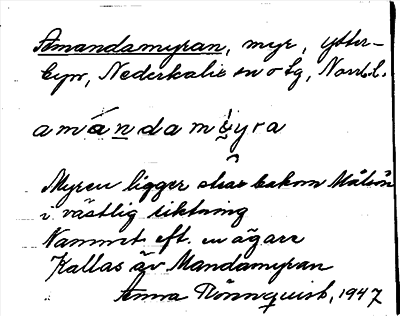 Amandamyran, myr, Ytter-
byn, Nederkalix sn o tg, Norrb.l.
amándam yra
Myren ligger strax bakom Målsön
i västlig riktning
Namnet eft. en ägare
Kallas äv Mandamyran
Anna Rönnquist, 1947